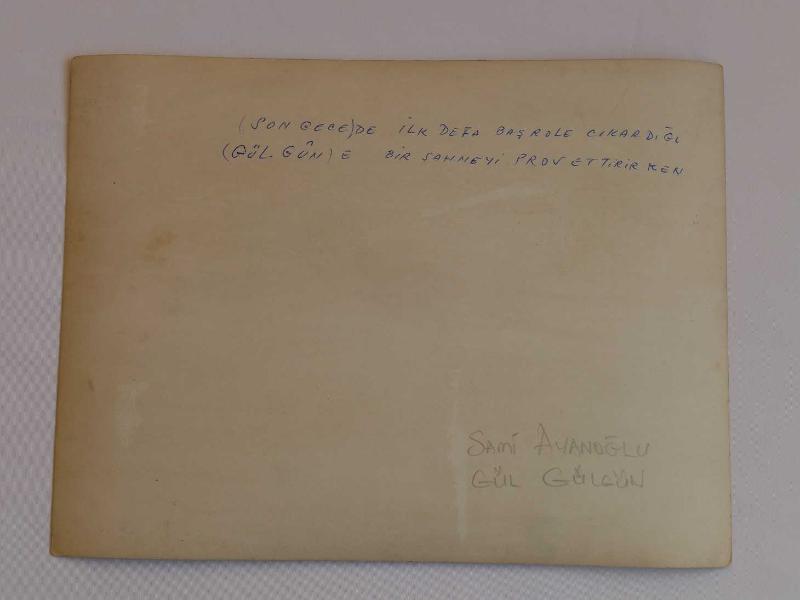 (SON GECE)DE İLK DEFA BAŞROLE CIKARDIĞI
(GÜL GÜN)E BİR SAHNEYİ PROV ETTİRİRKEN
SAMİ AYANOĞLU
GÜL GÜLGÜN